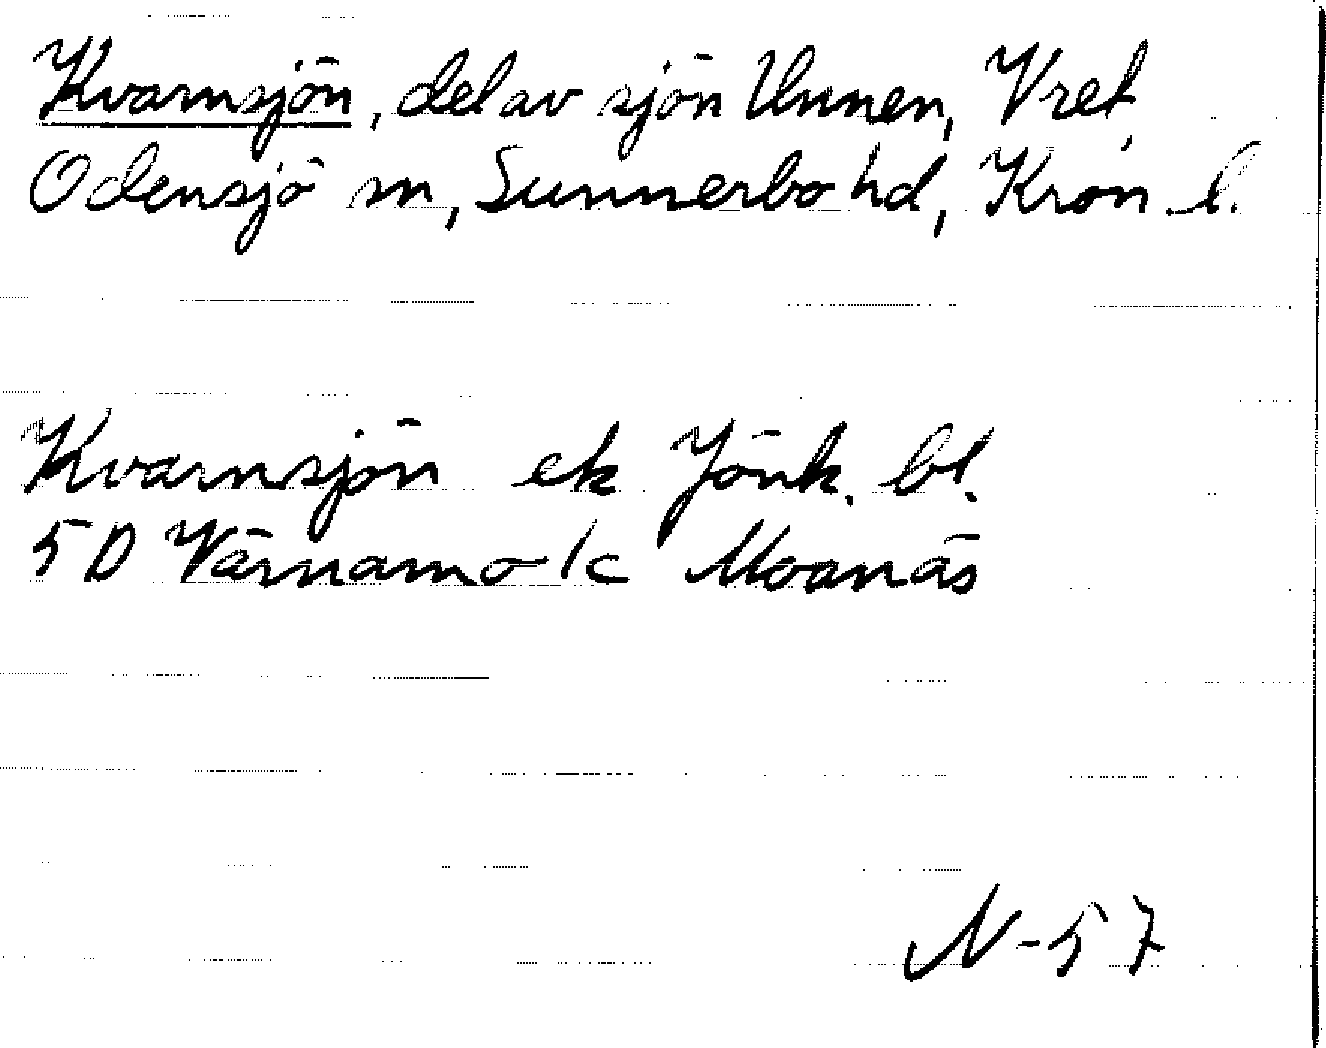 Kvarnsjön, del av sjön Unnen, Vret,
Odensjö sn, Sunnerbo hd, Kron. l.
Kvarnsjön ek Jönk. bl.
5D Värnamo 1c Moanäs
N-57